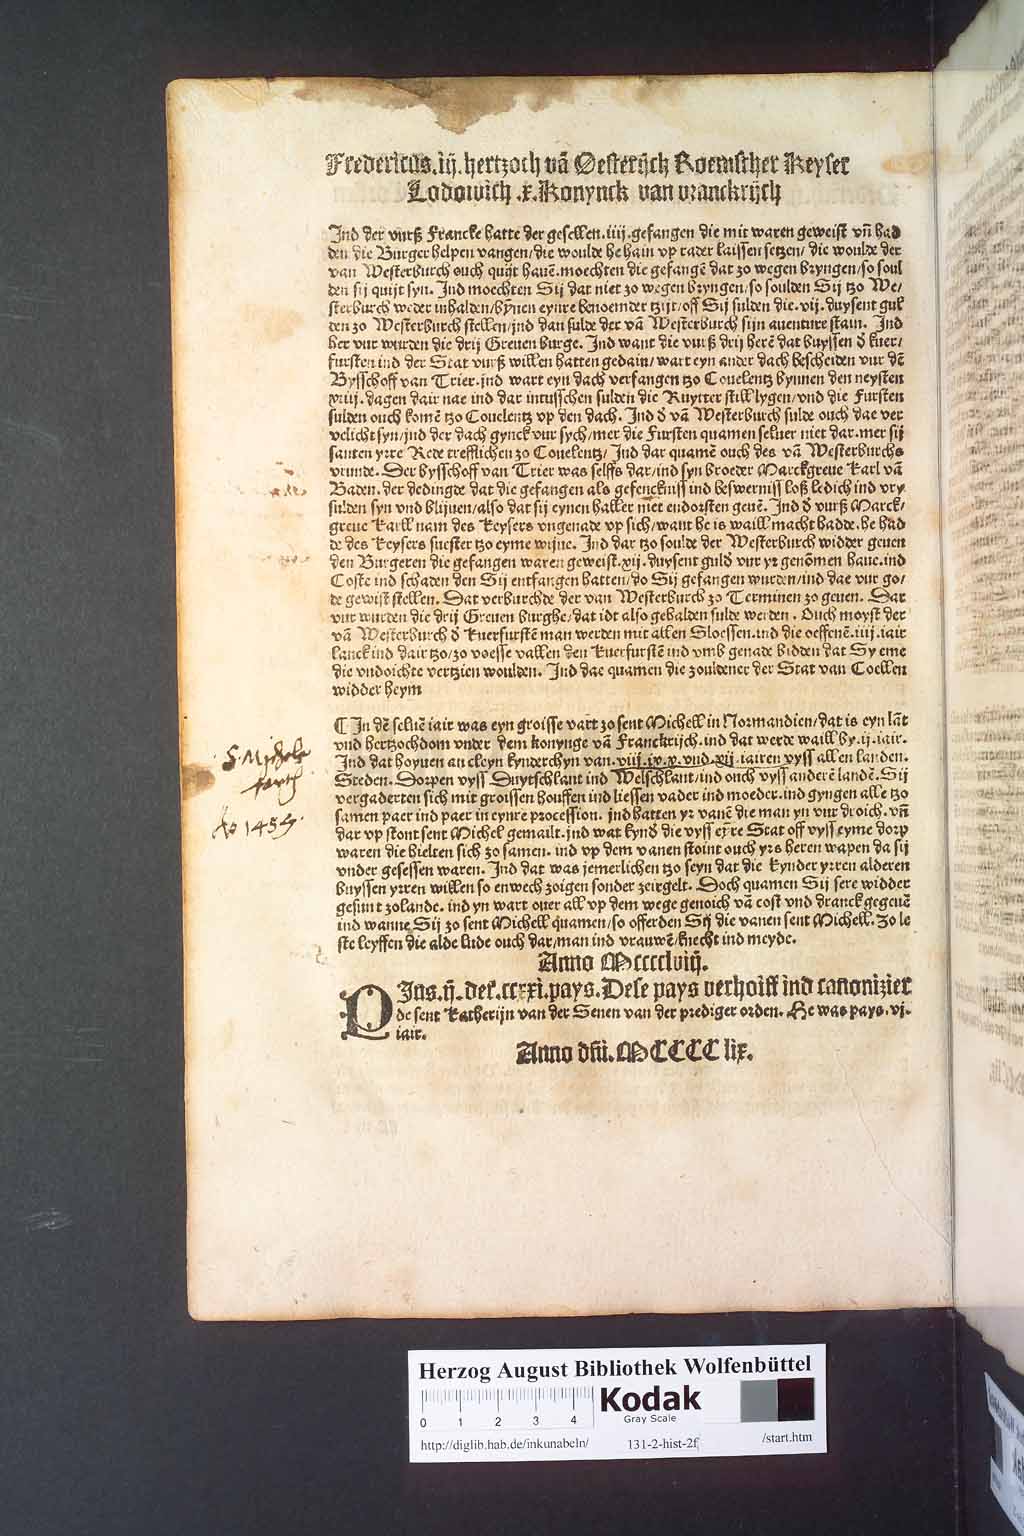 Fredericus .iij. hertzoch vā Oesterijch Roemscher Keyser
Lodowich .x. Konynck van vranckrijch
Ind der vurß Francke hatte der gesellen .iiij. gefangen die mit waren geweist vñ had
den die Burger helpen vangen/die woulde he hain vp rader laissen setzen/ die woulde der
van Westerburch ouch quijt hauē. moechten die gefangē dat zo wegen bryngen/so soul
den sij quijt syn. Ind moechten Sij dat niet zo wegen bryngen/so soulden Sij tzo We/
sterburch weder inhalden/bȳnen eynre benoemder tzijt/off Sij sulden die .vij. duysent gul
den zo Westerburch stellen/jnd dan sulde der vā Westerburch sijn auenture stain. Ind
her vur wurden die drij Greuen burge. Ind want die vurß drij herē dat buyssen d̄ kuer/
fursten ind der Stat vurß willen hatten gedain/ wart eyn ander dach bescheiden vur dē
Bysschoff van Trier. jnd wart eyn dach verfangen tzo Couelentz bynnen den neysten
xiiij. dagen dair nae ind dar intusschen sulden die Ruyter still lygen/vnd die Fursten
sulden ouch komē tzo Couelentz vp den dach. Ind d̄ vā Westerburch sulde ouch dae ver
velicht syn/jnd der dach gynck vur sych/mer die Fursten quamen seluer niet dar. mer sij
santen yrre Rede trefflichen zo Couelentz/ Ind dar quamē ouch des vā Westerburchs
vrunde. Der bysschoff van Trier was selffs dar/ind syn broeder Marckgreue Karl vā
Baden. der dedingde dat die gefangen als gefenckniss ind beswerniss loß ledich ind vry
sulden syn vnd blijuen/also dat sij eynen haller niet endorsten geuē. Ind d̄ vurß Marck/
greue Karll nam des Keysers vngenade vp sich/want he is waill macht hadde. he had
de des Keysers suester tzo eyme wijue. Ind dar tzo soulde der Westerburch widder geuen
den Burgeren die gefangen waren geweist .xij. duysent guld̄ vur yr genōmen haue. ind
Coste ind schaden den Sij entfangen hatten/do Sij gefangen wurden/ind dae vur go/
de gewist stellen. Dat verburchde der van Westerburch zo Terminen zo geuen. Dar
vur wurden die drij Greuen burghe/dat idt also gehalden sulde werden. Ouch moyst der
vā Westerburch d̄ Kuerfurstē man werden mit allen Sloessen. ind die oeffenē .iiij. iair
lanck ind dair tzo/zo voesse vallen den Kuerfurstē ind vmb genade bidden dat Sy eme
die vndoichte vertzien woulden. Ind dae quamen die zouldener der Stat van Coellen
widder heym
S. Michels
fartt
Ao 1457.
¶ In dē seluē iair was eyn groisse vart zo sent Michell in Normandien/dat is eyn lāt
vnd hertzochdom vnder dem konynge vā Franckrijch. ind dat werde waill by .ij. iair.
Ind dat houen an cleyn kynderchyn van .viij. ix. x. vnd .xij. iairen vyss allen landen.
Steden. Dorpen vyss Duytschlant ind Welschlant/ind ouch vyss anderē landē. Sij
vergaderten sich mit groissen houffen ind liessen vader ind moeder. ind gyngen alle tzo
samen paer ind paer in eynre procession. jnd hatten yr vanē die man yn vur droich. vñ
dar vp stont sent Michel gemailt. jnd wat kynd̄ die vyss eȳre Stat off vyss eyme dorp
waren die hielten sich zo samen. ind vp dem vanen stoint ouch yrs heren wapen da sij
vnder gesessen waren. Ind dat was jemerlichen tzo seyn dat die kynder yrren alderen
buyssen yrren willen so enwech zoigen sonder zeirgelt. Doch quamen Sij sere widder
gesunt zolande. ind yn wart ouer all vp dem wege genoich vā cost vnd dranck gegeuē
ind wanne Sij zo sent Michell quamen/so offerden Sij die vanen sent Michell. Zo le
ste leyffen die alde lude ouch dar/man ind vrauwē/knecht ind meyde.
Anno Mcccclviij.
PIus .ij. der .ccxxi. pays. Dese pays verhoiff ind canonizier
de sent Katherijn van der Senen van der prediger orden. He was pays. vj.
iair.
Anno dñi. MCCCC lix.
Herzog August Bibliothek Wolfenbüttel
0 1 2 3 4
Kodak
Gray Scale
http://diglib.hab.de/inkunabeln/ 131-2-hist-2f /start.htm